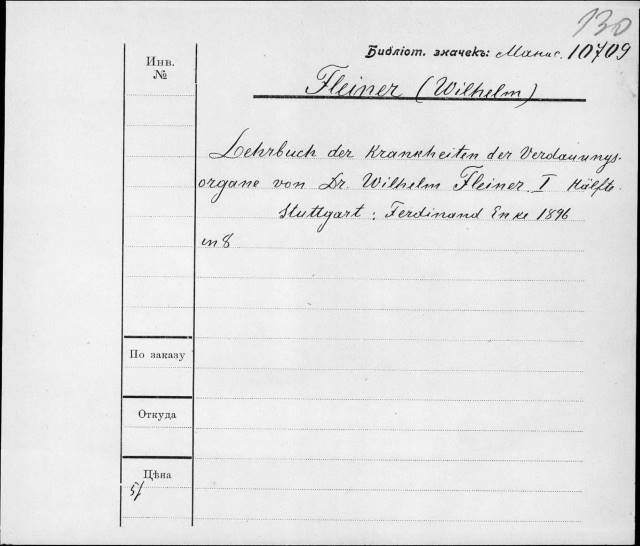 130
Библіот. значекъ: Манис. 10709
Инв.
№
Fleiner (Wilhelm)
Lehrbuch der Krankheiten der Verdauungs-
organe von Dr. Wilhelm Fleiner. I Hälfte.
Stuttgart: Ferdinand Enke 1896
in 8
По заказу
Откуда
Цѣна
5/